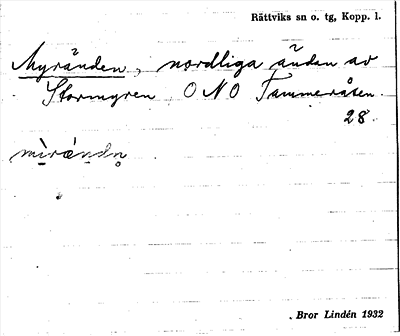 Rättviks sn o. tg, Kopp. l.
Myränden, nordliga ändan av
Stormyren ONO Tammeråsen.
28.
mìrǽndn̥
Bror Lindén 1932